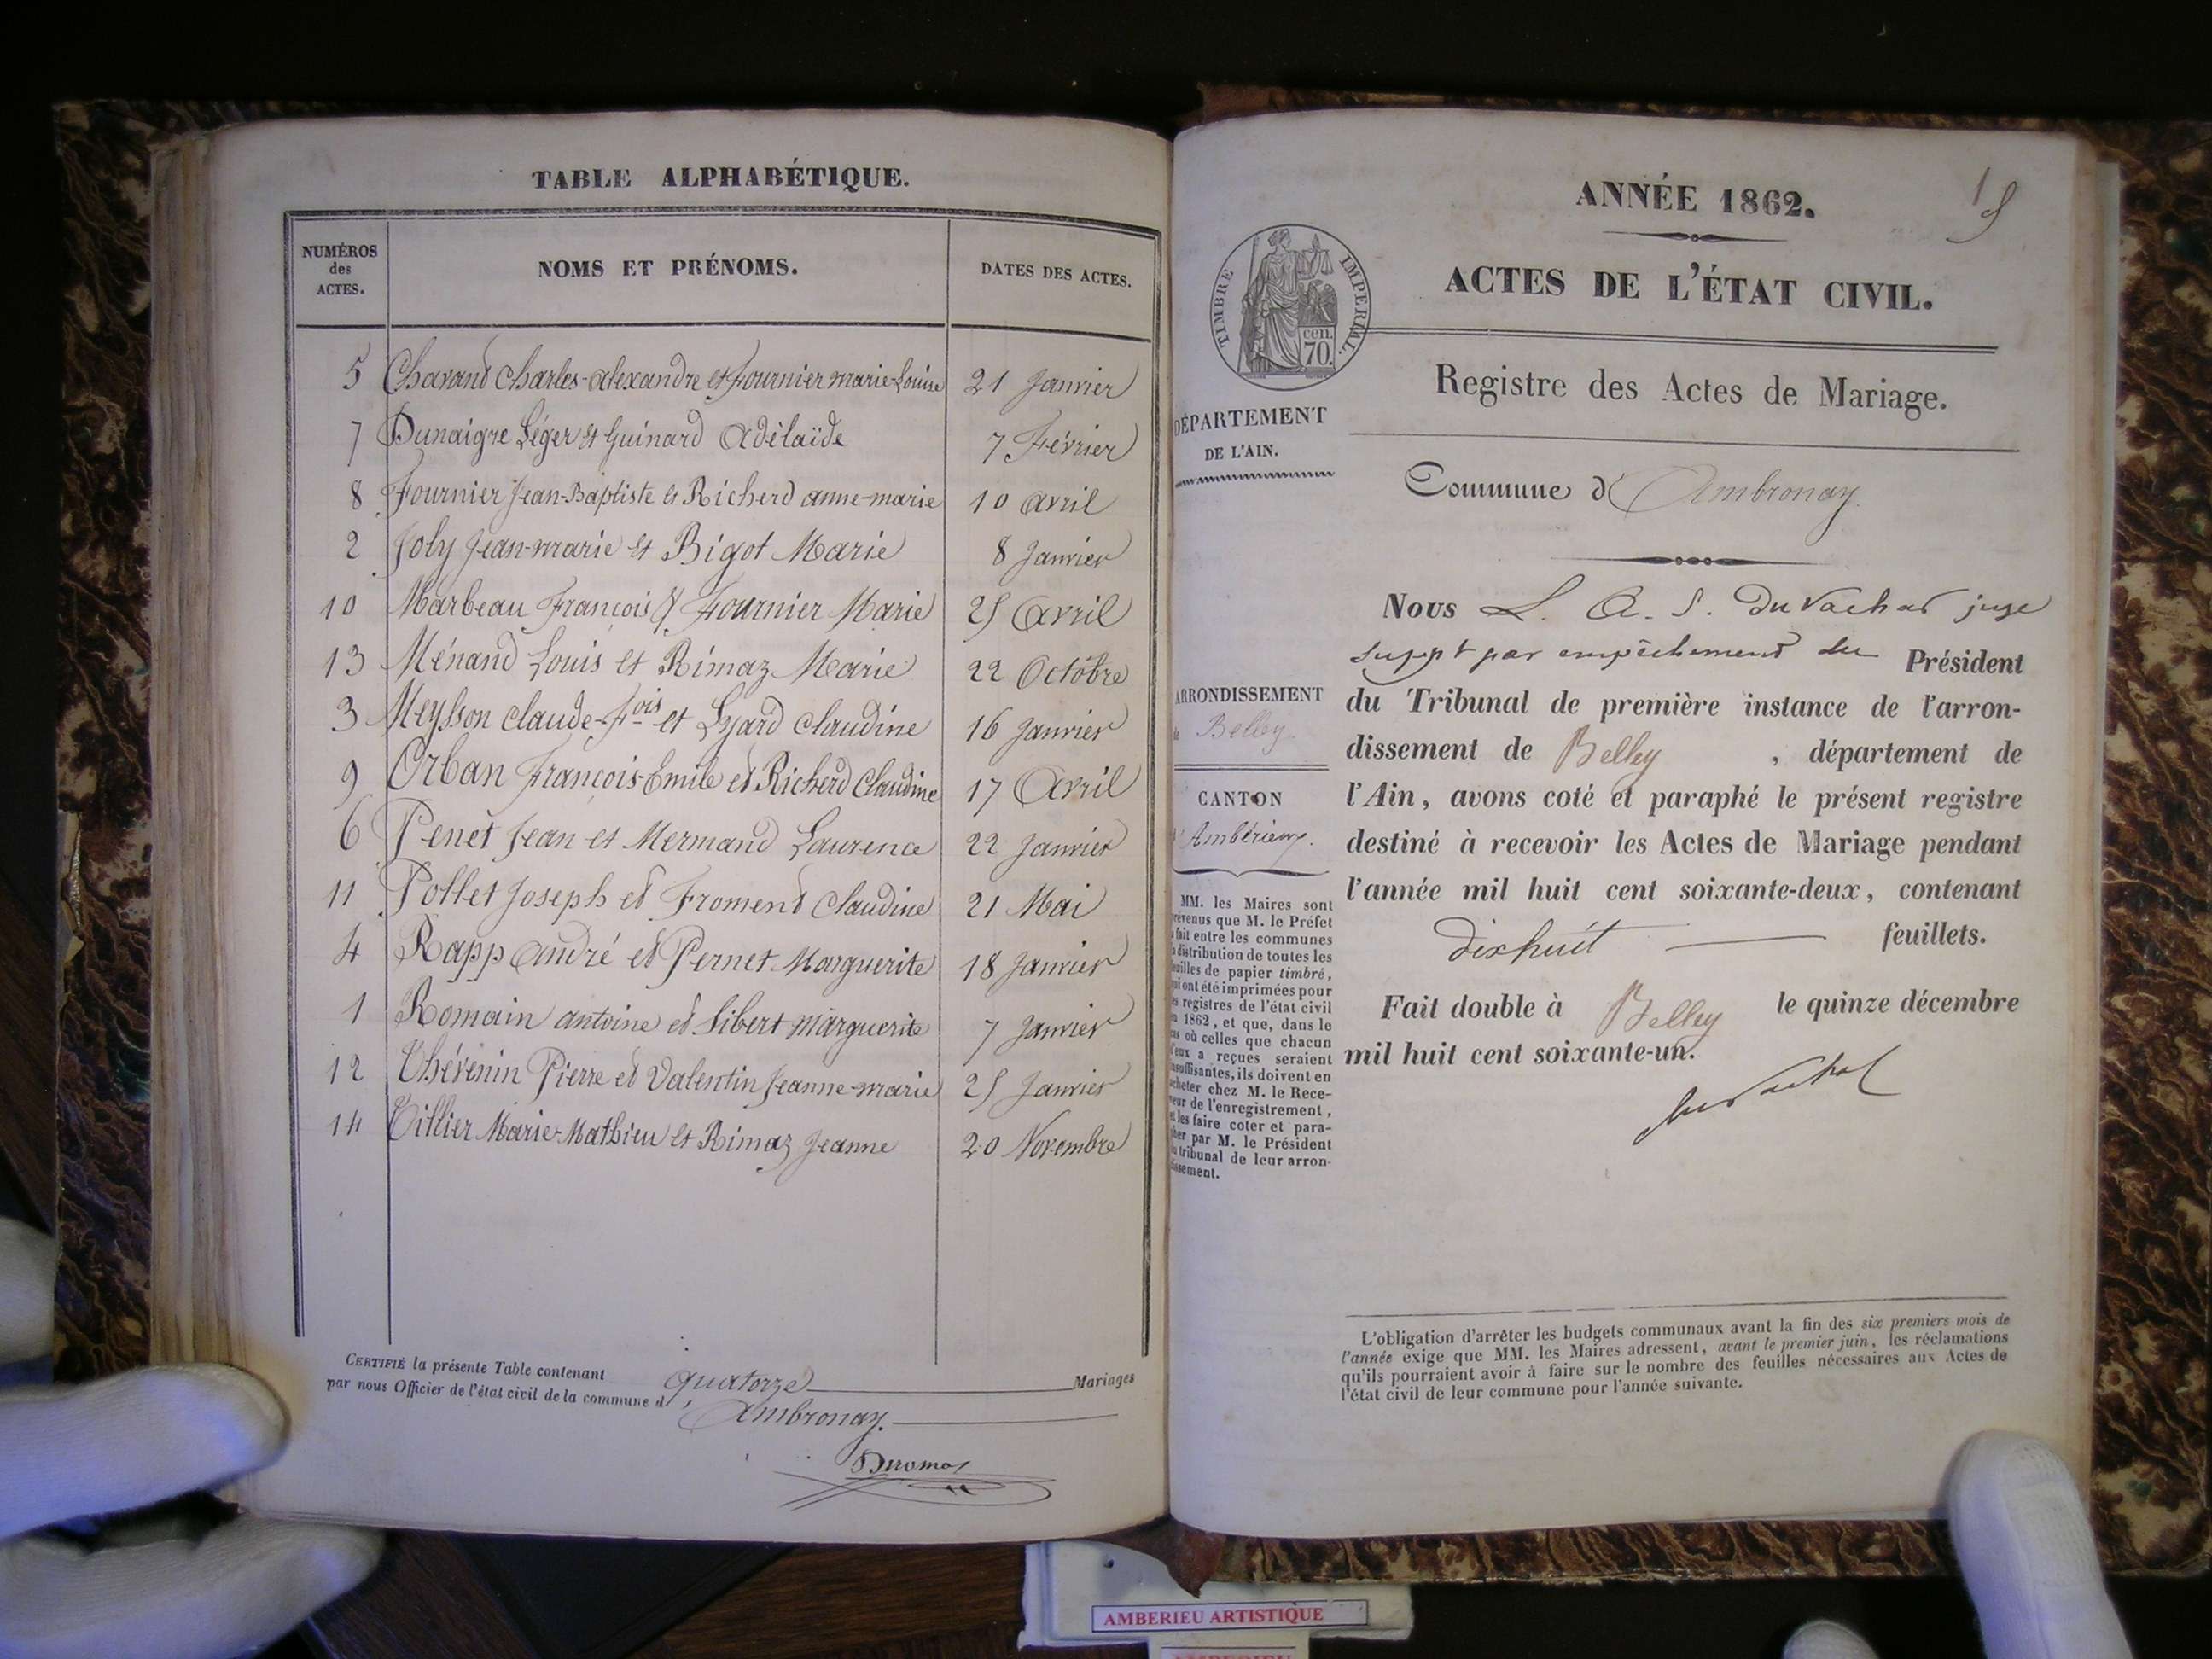 TABLE ALPHABÉTIQUE.
NUMÉROS des ACTES. NOMS ET PRÉNOMS. DATES DES ACTES.
5 Chavand Charles-Alexandre et Fournier marie-Louise 21 Janvier
7 Dunaigre Léger et Guinard Adélaïde 7 Février
8 Fournier Jean-Baptiste et Richerd anne-marie 10 avril
2 Joly Jean-marie et Bigot Marie 8 Janvier
10 Marbeau François & Fournier Marie 25 Avril
13 Ménand Louis et Rimaz Marie 22 Octobre
3 Meysson claude-fois et Lyard claudine 16 Janvier
9 Orban François-Emile et Richerd Claudine 17 Avril
6 Penet Jean et Mermand Laurence 22 Janvier
11 Pollet Joseph et Froment Claudine 21 Mai
4 Rapp André et Pernet Marguerite 18 Janvier
1 Romain antoine et Sibert marguerite 7 Janvier
12 Thévenin Pierre et Valentin Jeanne-marie 25 Janvier
14 Tillier Marie-Mathieu et Rimaz Jeanne 20 Novembre
CERTIFIÉ la présente Table contenant quatorze Mariages
par nous Officier de l'état civil de la commune d'Ambronay.
ANNÉE 1862.
ACTES DE L'ÉTAT CIVIL.
TIMBRE IMPERIAL.
cen.
70.
Registre des Actes de Mariage.
DÉPARTEMENT
DE L'AIN.
Commune d'Ambronay
ARRONDISSEMENT
de Belley.
CANTON
d'Ambérieux.
MM. les Maires sont
prévenus que M. le Préfet
a fait entre les communes
la distribution de toutes les
feuilles de papier timbré,
qui ont été imprimées pour
les registres de l'état civil
en 1862, et que, dans le
cas où celles que chacun
d'eux a reçues seraient
insuffisantes, ils doivent en
acheter chez M. le Rece-
veur de l'enregistrement,
et les faire coter et para-
pher par M. le Président
du tribunal de leur arron-
dissement.
Nous L. A. S. Du Vachat juge
suppt par empêchement du Président
du Tribunal de première instance de l'arron-
dissement de Belley , département de
l'Ain, avons coté et paraphé le présent registre
destiné à recevoir les Actes de Mariage pendant
l'année mil huit cent soixante-deux, contenant
dixhuit feuillets.
Fait double à Belley le quinze décembre
mil huit cent soixante-un.
du Vachat
L'obligation d'arrêter les budgets communaux avant la fin des six premiers mois de
l'année exige que MM. les Maires adressent, avant le premier juin, les réclamations
qu'ils pourraient avoir à faire sur le nombre des feuilles nécessaires aux Actes de
l'état civil de leur commune pour l'année suivante.
AMBERIEU ARTISTIQUE
AMBERIEU